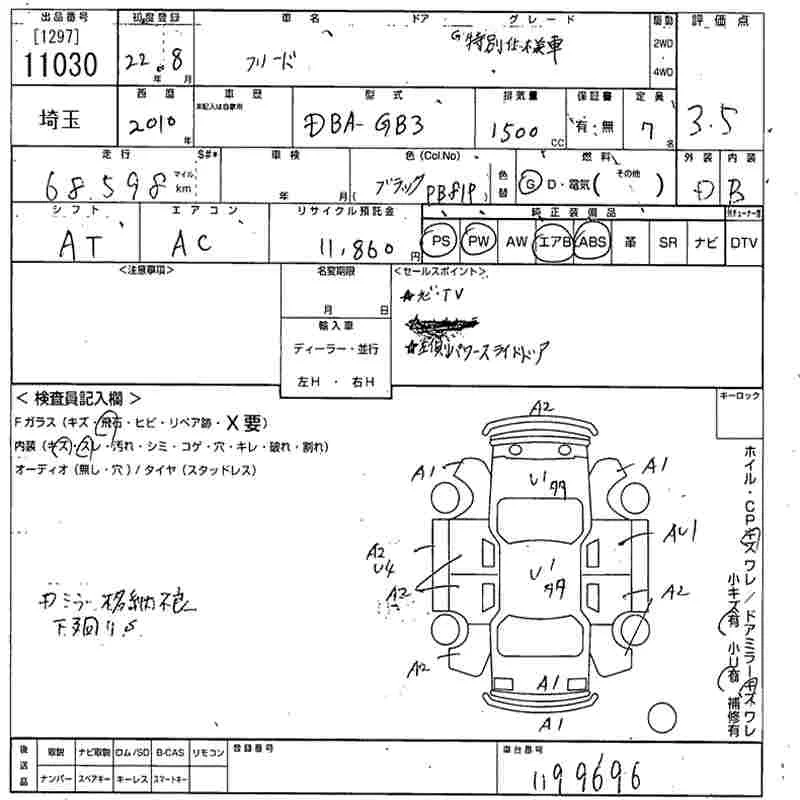 出品番号 初度登録 車名 ドア グレード 駆動 評価点
[1297]
11030 22.8 年 月 フリード G特別仕様車 2WD 4WD 3.5
西暦 車歴 型式 排気量 保証書 定員
埼玉 2010年 未記入は自家用 DBA-GB3 1500cc 有・無 7名
走行 S#* 車検 色(Col.No) 色替 燃料 外装 内装
68,598 マイル km 年 月 ブラック(PB81P) G D・電気(その他) D B
シフト エアコン リサイクル預託金 純正装備品
AT AC 11,860円 PS PW AW エアB ABS 革 SR ナビ DTV
<注意事項> 名変期限 <セールスポイント>
月 日
☆ナビ・TV
輸入車
ディーラー・並行
☆左側パワースライドドア
左H・右H
<検査員記入欄> キーロック
Fガラス(キズ・飛石・ヒビ・リペア跡・X要)
内装(キズ・スレ・汚れ・シミ・コゲ・穴・キレ・破れ・割れ)
オーディオ(無し・穴)/タイヤ(スタッドレス)
A2
A1 U1 多々 A1
A2 U4 AU1
A2 U1 多々 A2
A2 A1
A1
ミラー格納不良
下廻りS
ホイル・CPキズワレ/ドアミラーキズワレ
小キズ有 小U有 補修有
後送品 取説 ナビ取説 ロム/SD B-CAS リモコン 登録番号 車台番号
ナンバー スペアキー キーレス スマートキー 1199696